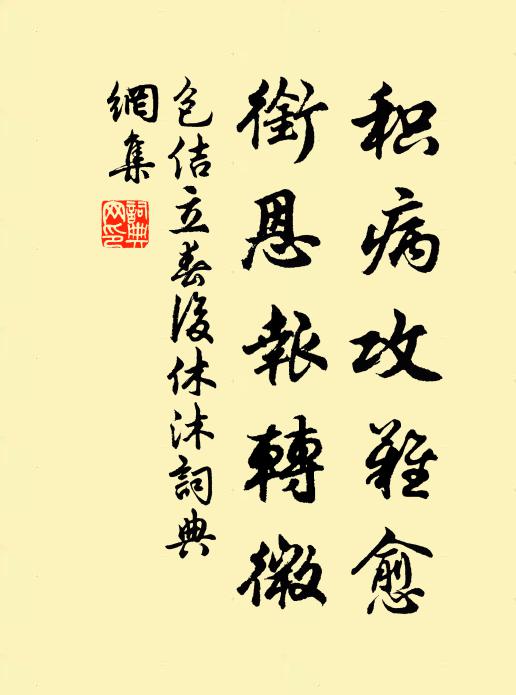 积病攻难愈
銜恩報轉微
包佶立春後休沐詞典
網集
詞典
网印